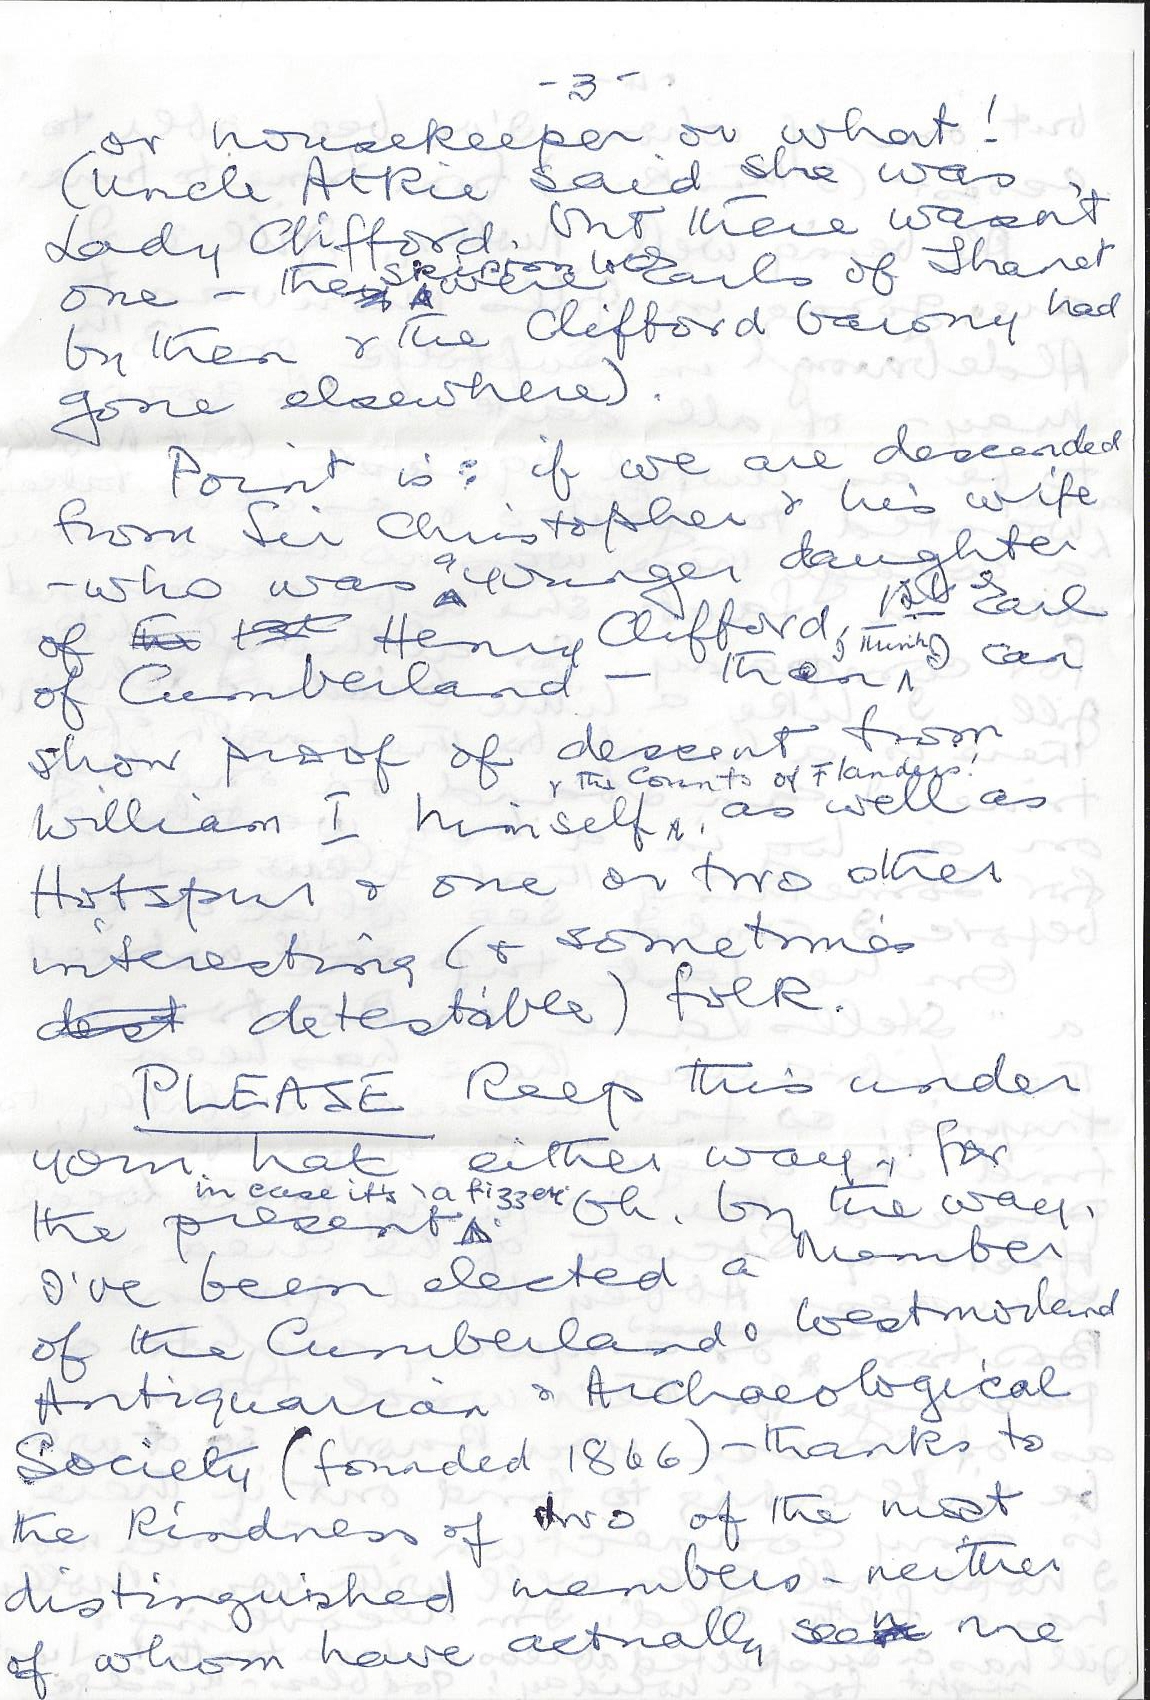 - 3 -
or housekeeper or what!
(Uncle Atkie said she was
Lady Clifford. but there wasn't
one - the Skipton was Earls of Thanet
by then & the Clifford barony had
gone elsewhere).
Point is: if we are descended
from Sir Christopher & his wife
- who was a younger daughter
of Henry Clifford, 1st Earl
of Cumberland - then, can
show proof of descent from
William I himself, & the Counts of Flanders! as well as
Hotspur & one or two other
interesting (& sometimes
detestable) folk.
PLEASE keep this under
your hat either way, for
the present in case it's a fizzer. Oh, by the way,
I've been elected a Member
of the Cumberland & Westmorland
Antiquarian & Archaeological
Society (founded 1866) - thanks to
the kindness of two of the most
distinguished members - neither
of whom have actually seen me